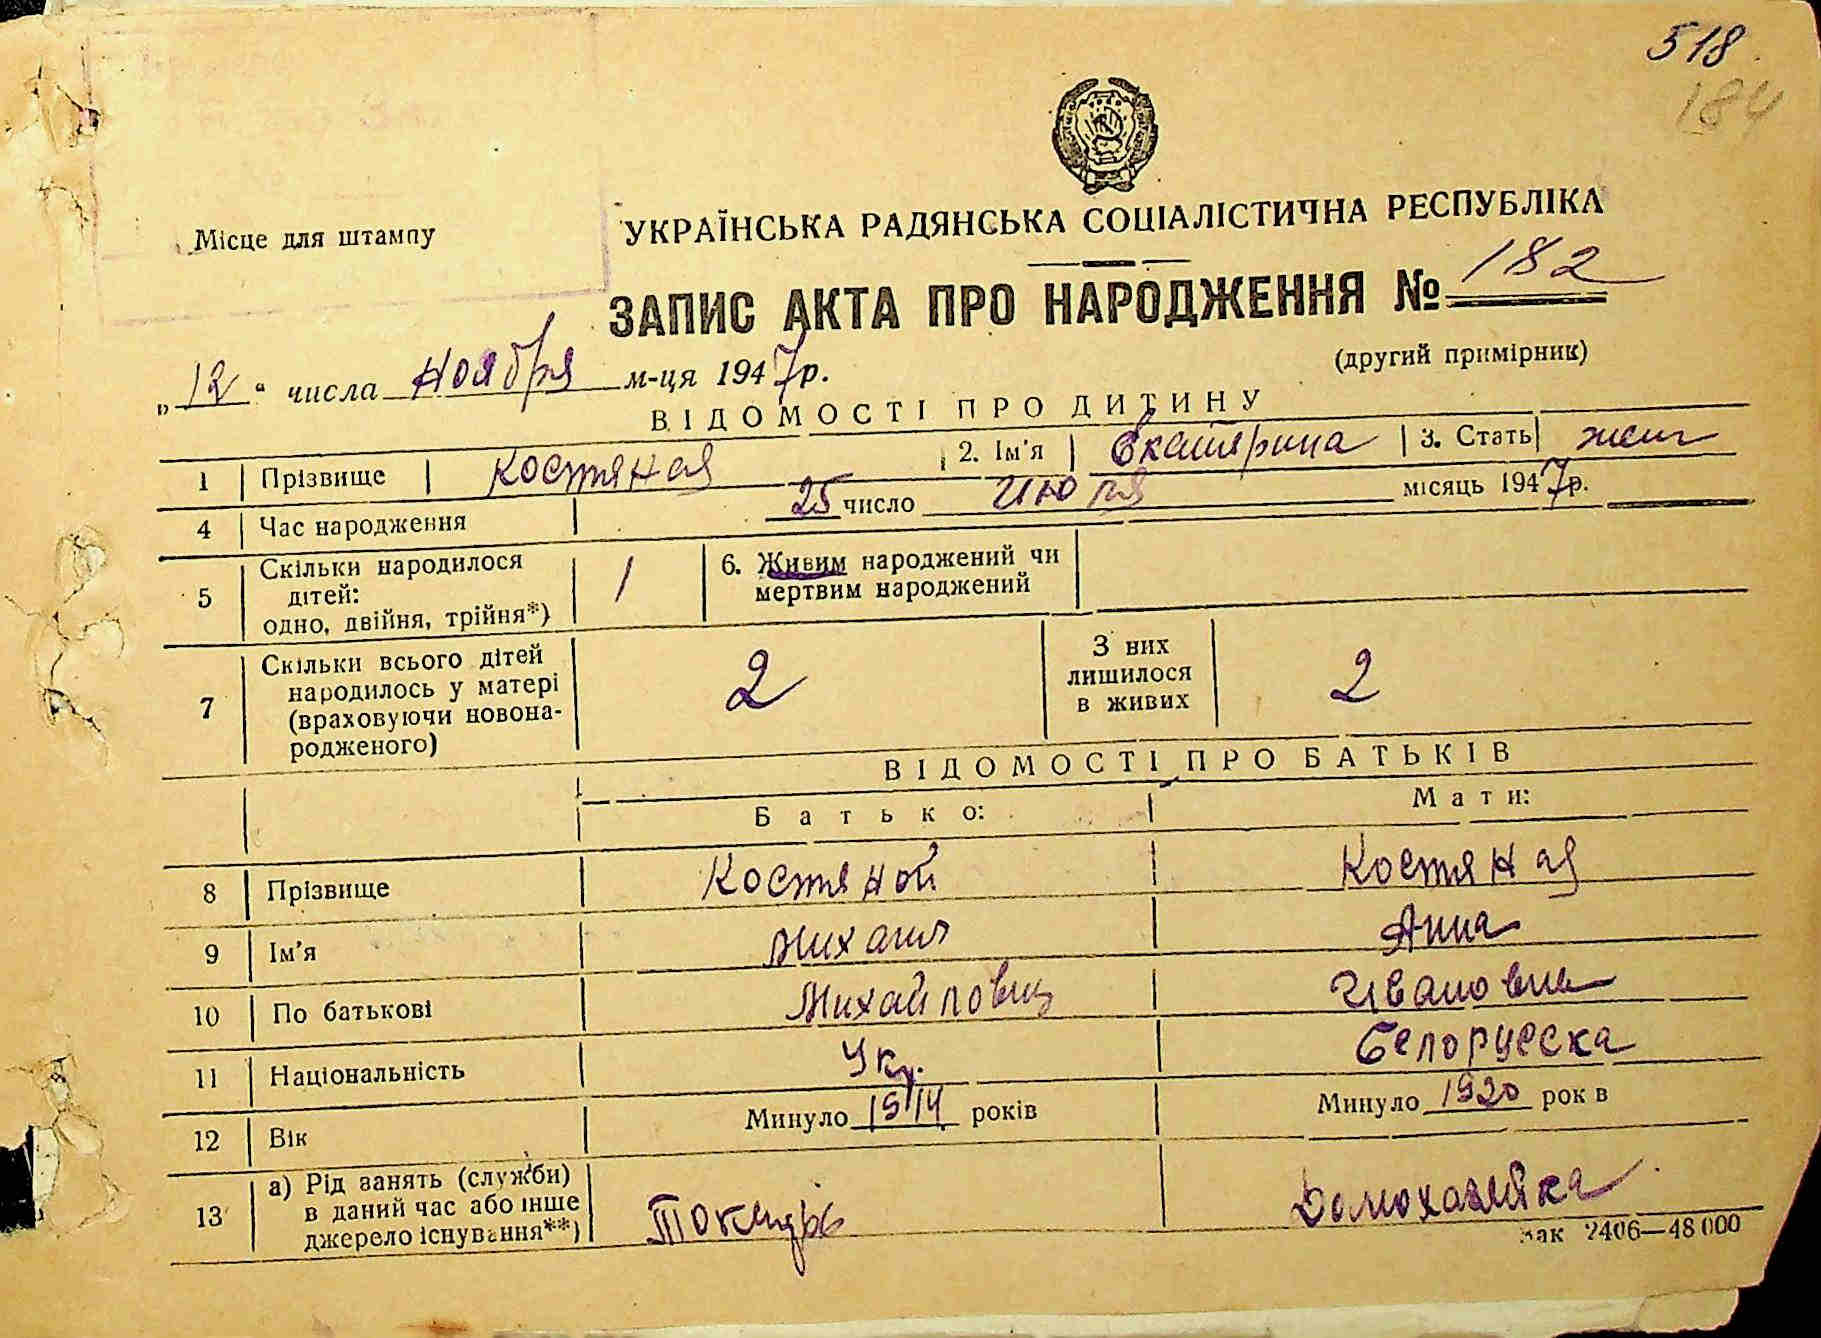 518
184
Місце для штампу
УКРАЇНСЬКА РАДЯНСЬКА СОЦІАЛІСТИЧНА РЕСПУБЛІКА
ЗАПИС АКТА ПРО НАРОДЖЕННЯ № 182
(другий примірник)
„12“ числа ноября м-ця 1947 р.
ВІДОМОСТІ ПРО ДИТИНУ
1 Прізвище Костяная 2. Ім'я Екатерина 3. Стать жен
4 Час народження 25 число Июля місяць 1947 р.
5 Скільки народилося дітей: одно, двійня, трійня*) 1 6. Живим народжений чи мертвим народжений
7 Скільки всього дітей народилось у матері (враховуючи новонародженого) 2 З них лишилося в живих 2
ВІДОМОСТІ ПРО БАТЬКІВ
Батько: Мати:
8 Прізвище Костяной Костяная
9 Ім'я Михаил Анна
10 По батькові Михайлович Ивановна
11 Національність Укр. Белорусска
12 Вік Минуло 1914 років Минуло 1920 рок в
13 а) Рід занять (служби) в даний час або інше джерело існування**) Домохазяйка
Зак 2406—48 000